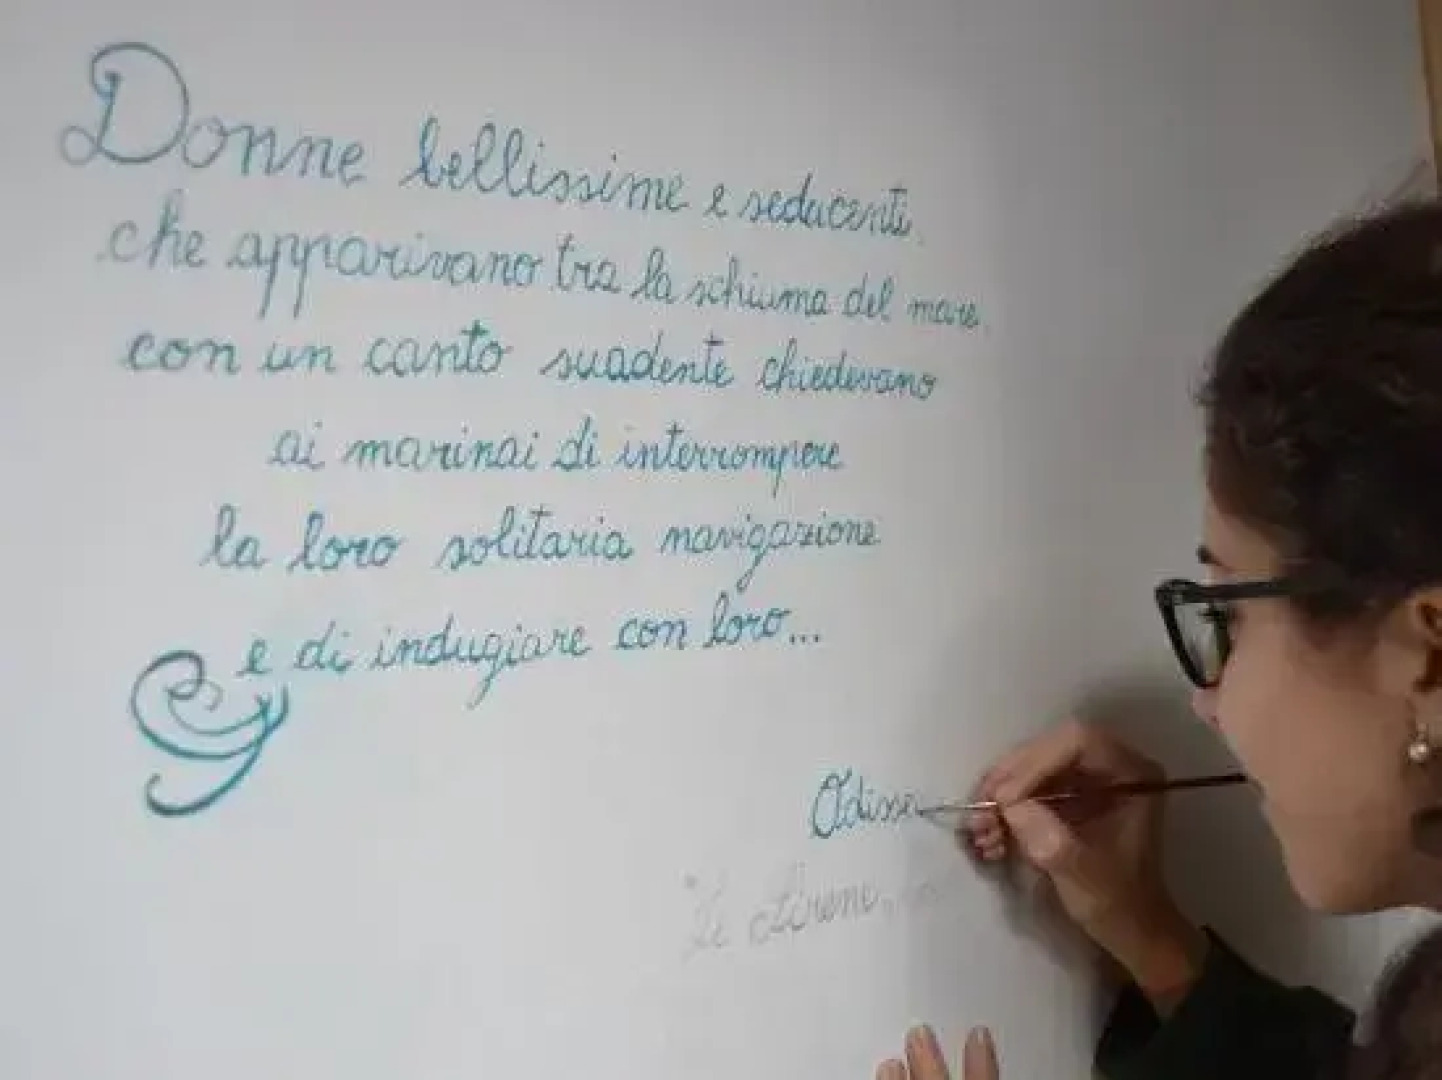 Donne bellissime e seducenti,
che apparivano tra la schiuma del mare,
con un canto suadente chiedevano
ai marinai di interrompere
la loro solitaria navigazione
e di indugiare con loro...
Odisse
"Le Sirene,